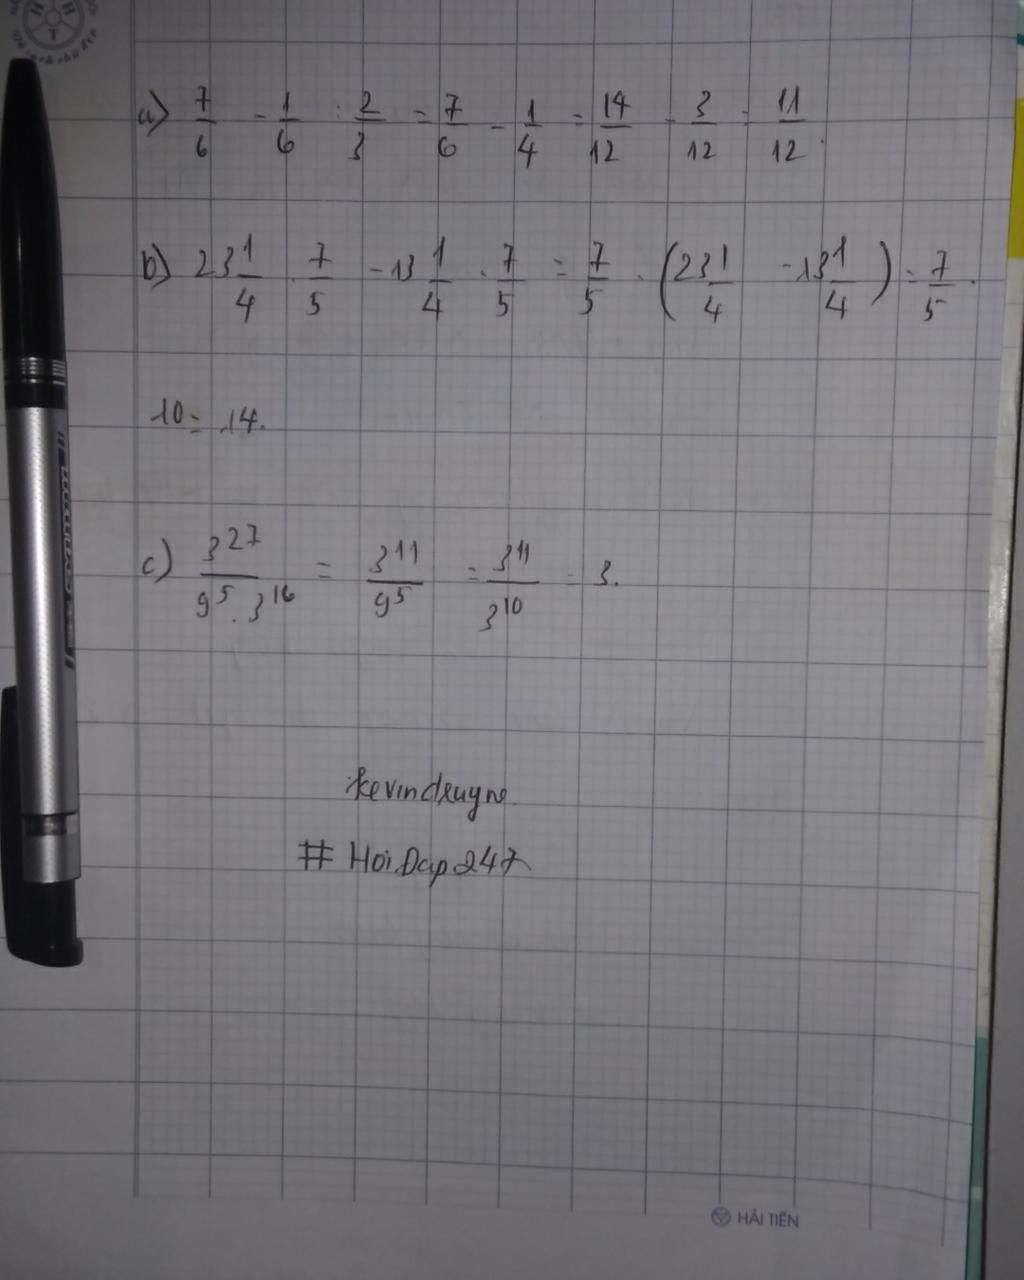 a) 7/6 - 1/6 : 2/3 = 7/6 - 1/4 = 14/12 - 3/12 = 11/12.
b) 23 1/4 . 7/5 - 13 1/4 . 7/5 = 7/5 . (23 1/4 - 13 1/4) = 7/5 .
10 = 14.
c) 3^27 / 9^5 . 3^16 = 3^11 / 9^5 = 3^11 / 3^10 = 3.
# HoiDap247
HẢI TIẾN